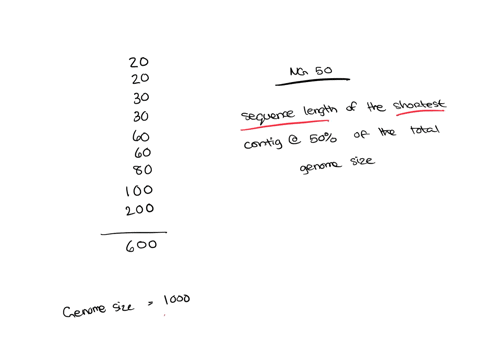 20
20
30
30
60
60
80
100
200
600
Genome size = 1000
NG 50
sequence length of the shortest
contig @ 50% of the total
genome size